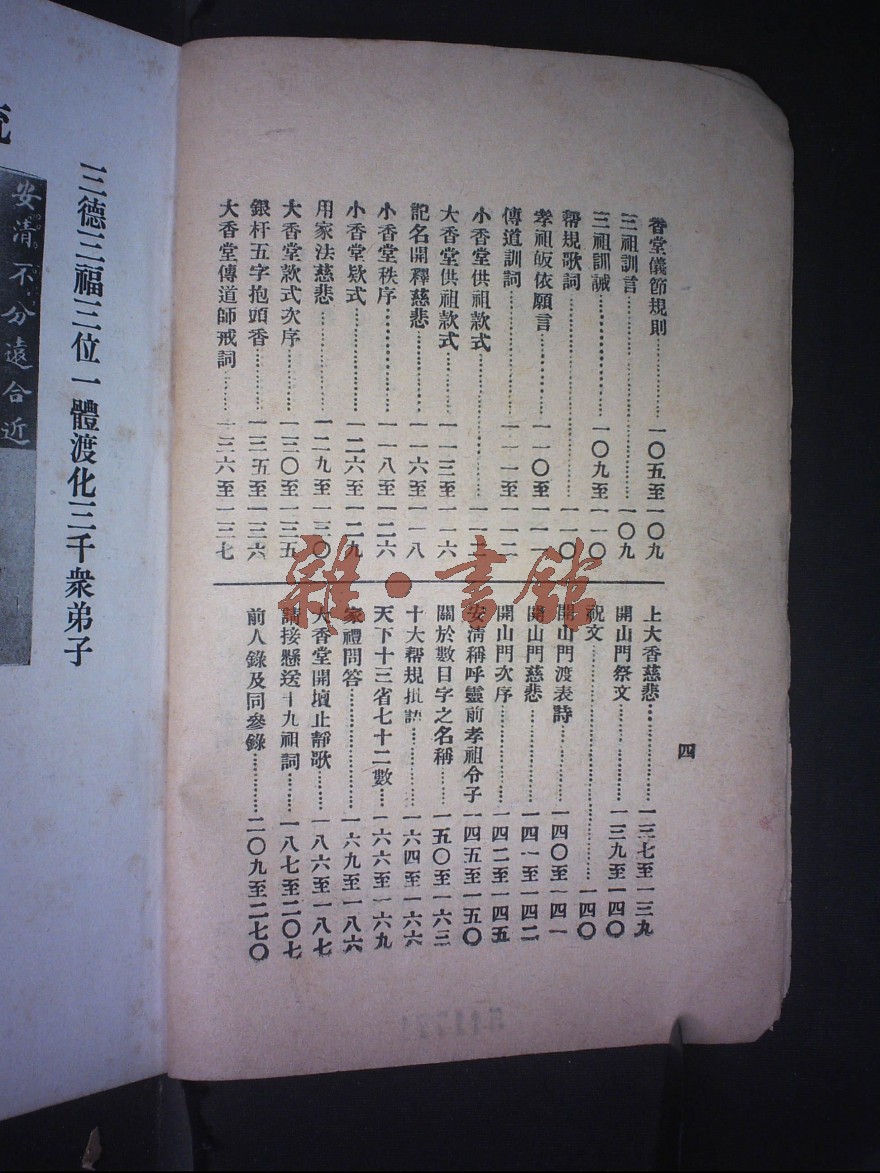 香堂儀節規則…………一〇五至一〇九
三祖訓言……………………一〇九
三祖訓誡……………一〇九至一一〇
帮規歌詞……………………一一〇
孝祖皈依願言………一一〇至一一一
傳道訓詞……………一一一至一一二
小香堂供祖款式……………一一二
大香堂供祖款式……一一三至一一六
記名開釋慈悲………一一六至一一八
小香堂秩序…………一一八至一二六
小香堂欵式…………一二六至一二九
用家法慈悲…………一二九至一三〇
大香堂款式次序……一三〇至一三五
銀杆五字抱頭香……一三五至一三六
大香堂傳道師戒詞……一三六至一三七
上大香慈悲…………一三七至一三九
開山門祭文…………一三九至一四〇
祝文…………………………一四〇
開山門渡表詩………一四〇至一四一
開山門慈悲…………一四一至一四二
開山門次序…………一四二至一四五
安清稱呼靈前孝祖令子 一四五至一五〇
關於數目字之名稱……一五〇至一六三
十大帮規批語………一六四至一六六
天下十三省七十二數…一六六至一六九
家禮問答……………一六九至一八六
大香堂開壇止靜歌……一八六至一八七
請接懸送十九祖詞……一八七至二〇七
前人錄及同參錄………二〇九至二七〇
四
三德三福三位一體渡化三千衆弟子
安清不分遠合近
雜·書館